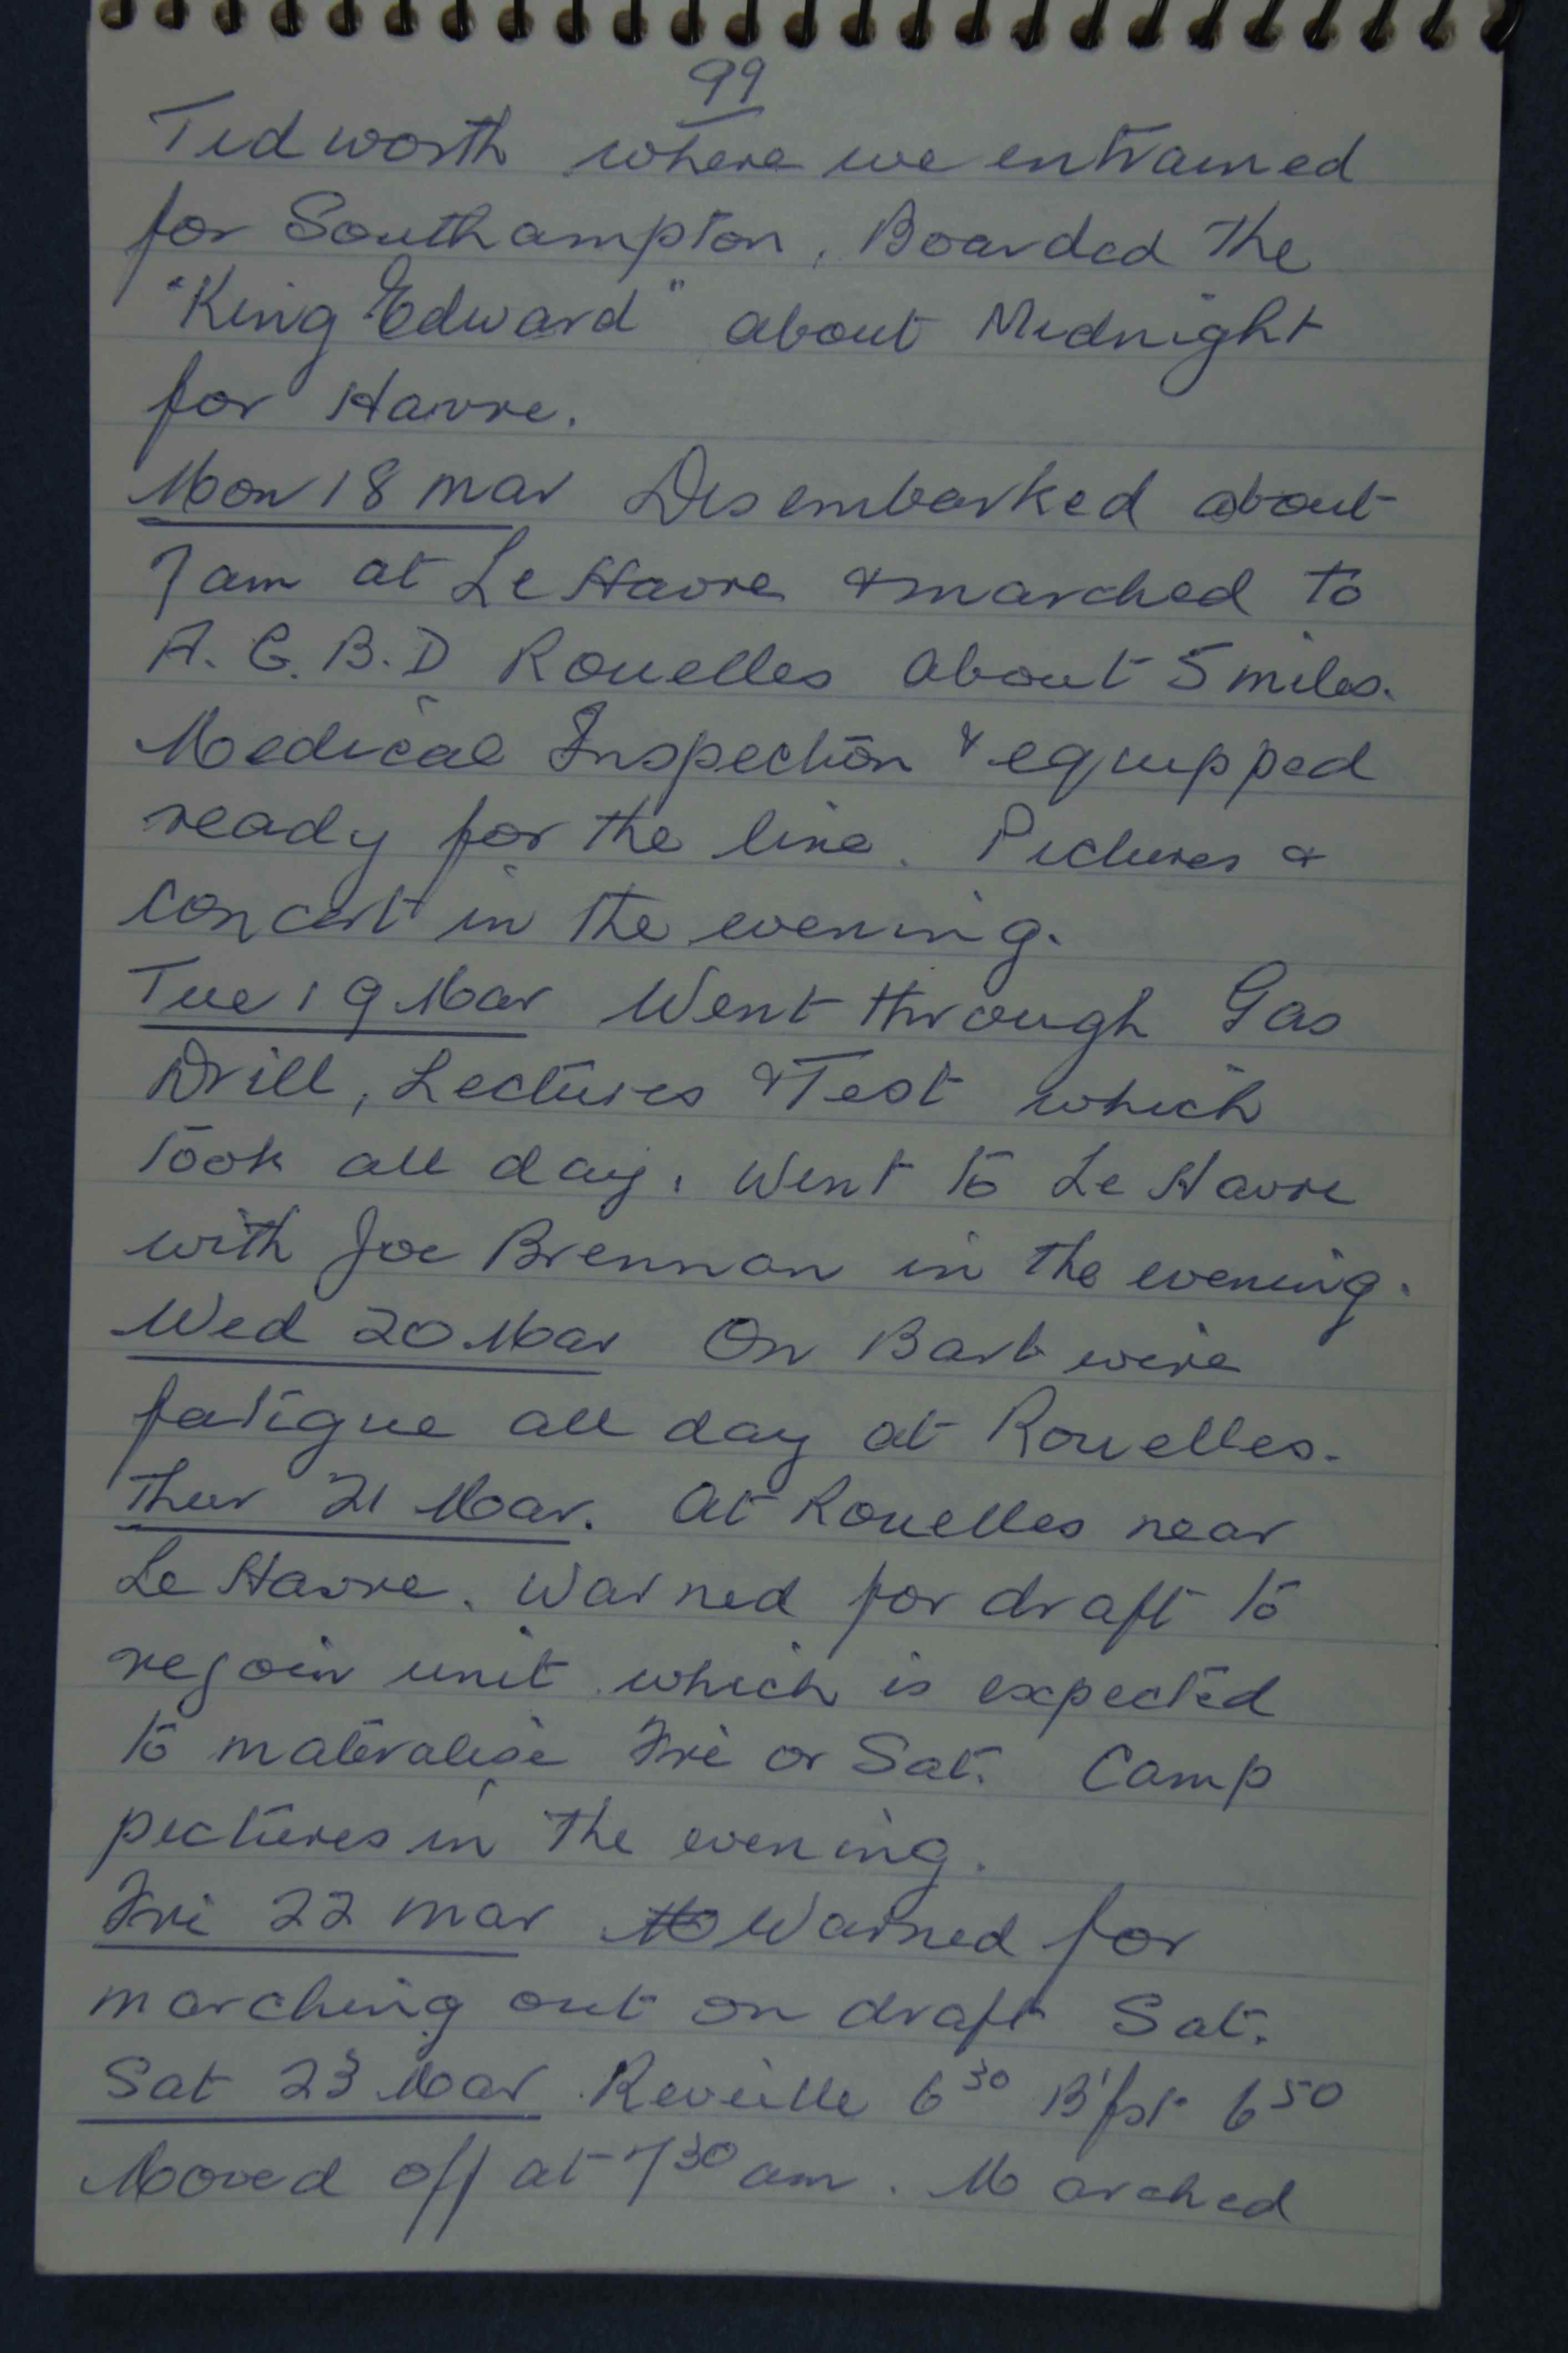 99
Tidworth where we entrained
for Southampton. Boarded the
"King Edward" about Midnight
for Havre.
Mon 18 mar Disembarked about
7 am at Le Havre & marched to
A. G. B. D Rouelles about 5 miles.
Medical Inspection & equipped
ready for the line. Pictures &
concert in the evening.
Tue 19 Mar Went through Gas
Drill, Lectures & Test which
took all day. Went to Le Havre
with Joe Brennan in the evening.
Wed 20 Mar On Barb wire
fatigue all day at Rouelles.
Thur 21 Mar. At Rouelles near
Le Havre. Warned for draft to
rejoin unit which is expected
to materalise Fri or Sat. Camp
pictures in the evening.
Fri 22 mar Warned for
marching out on draft Sat.
Sat 23 Mar Reveille 6 30 B'fst 6 50
Moved off at 7 30 am. Marched